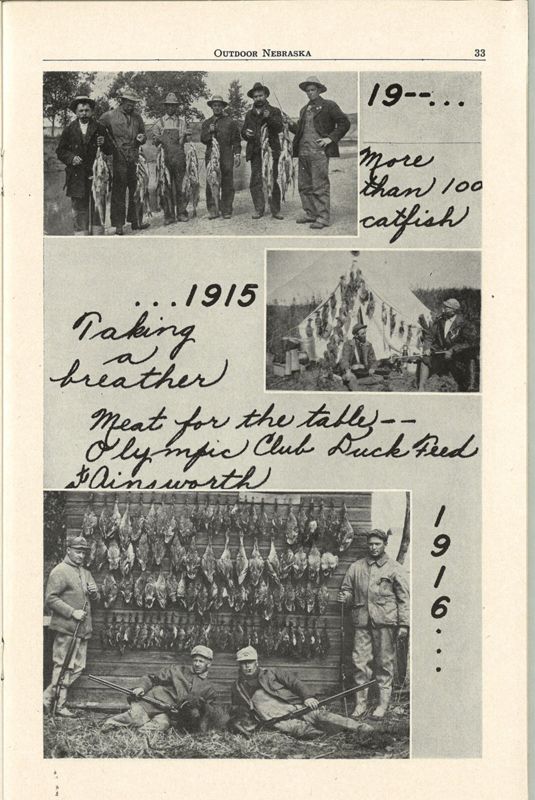 OUTDOOR NEBRASKA 33
19--...
More
than 100
catfish
...1915
Taking
a
breather
Meat for the table--
Olympic Club Duck Feed
Ainsworth
1916...